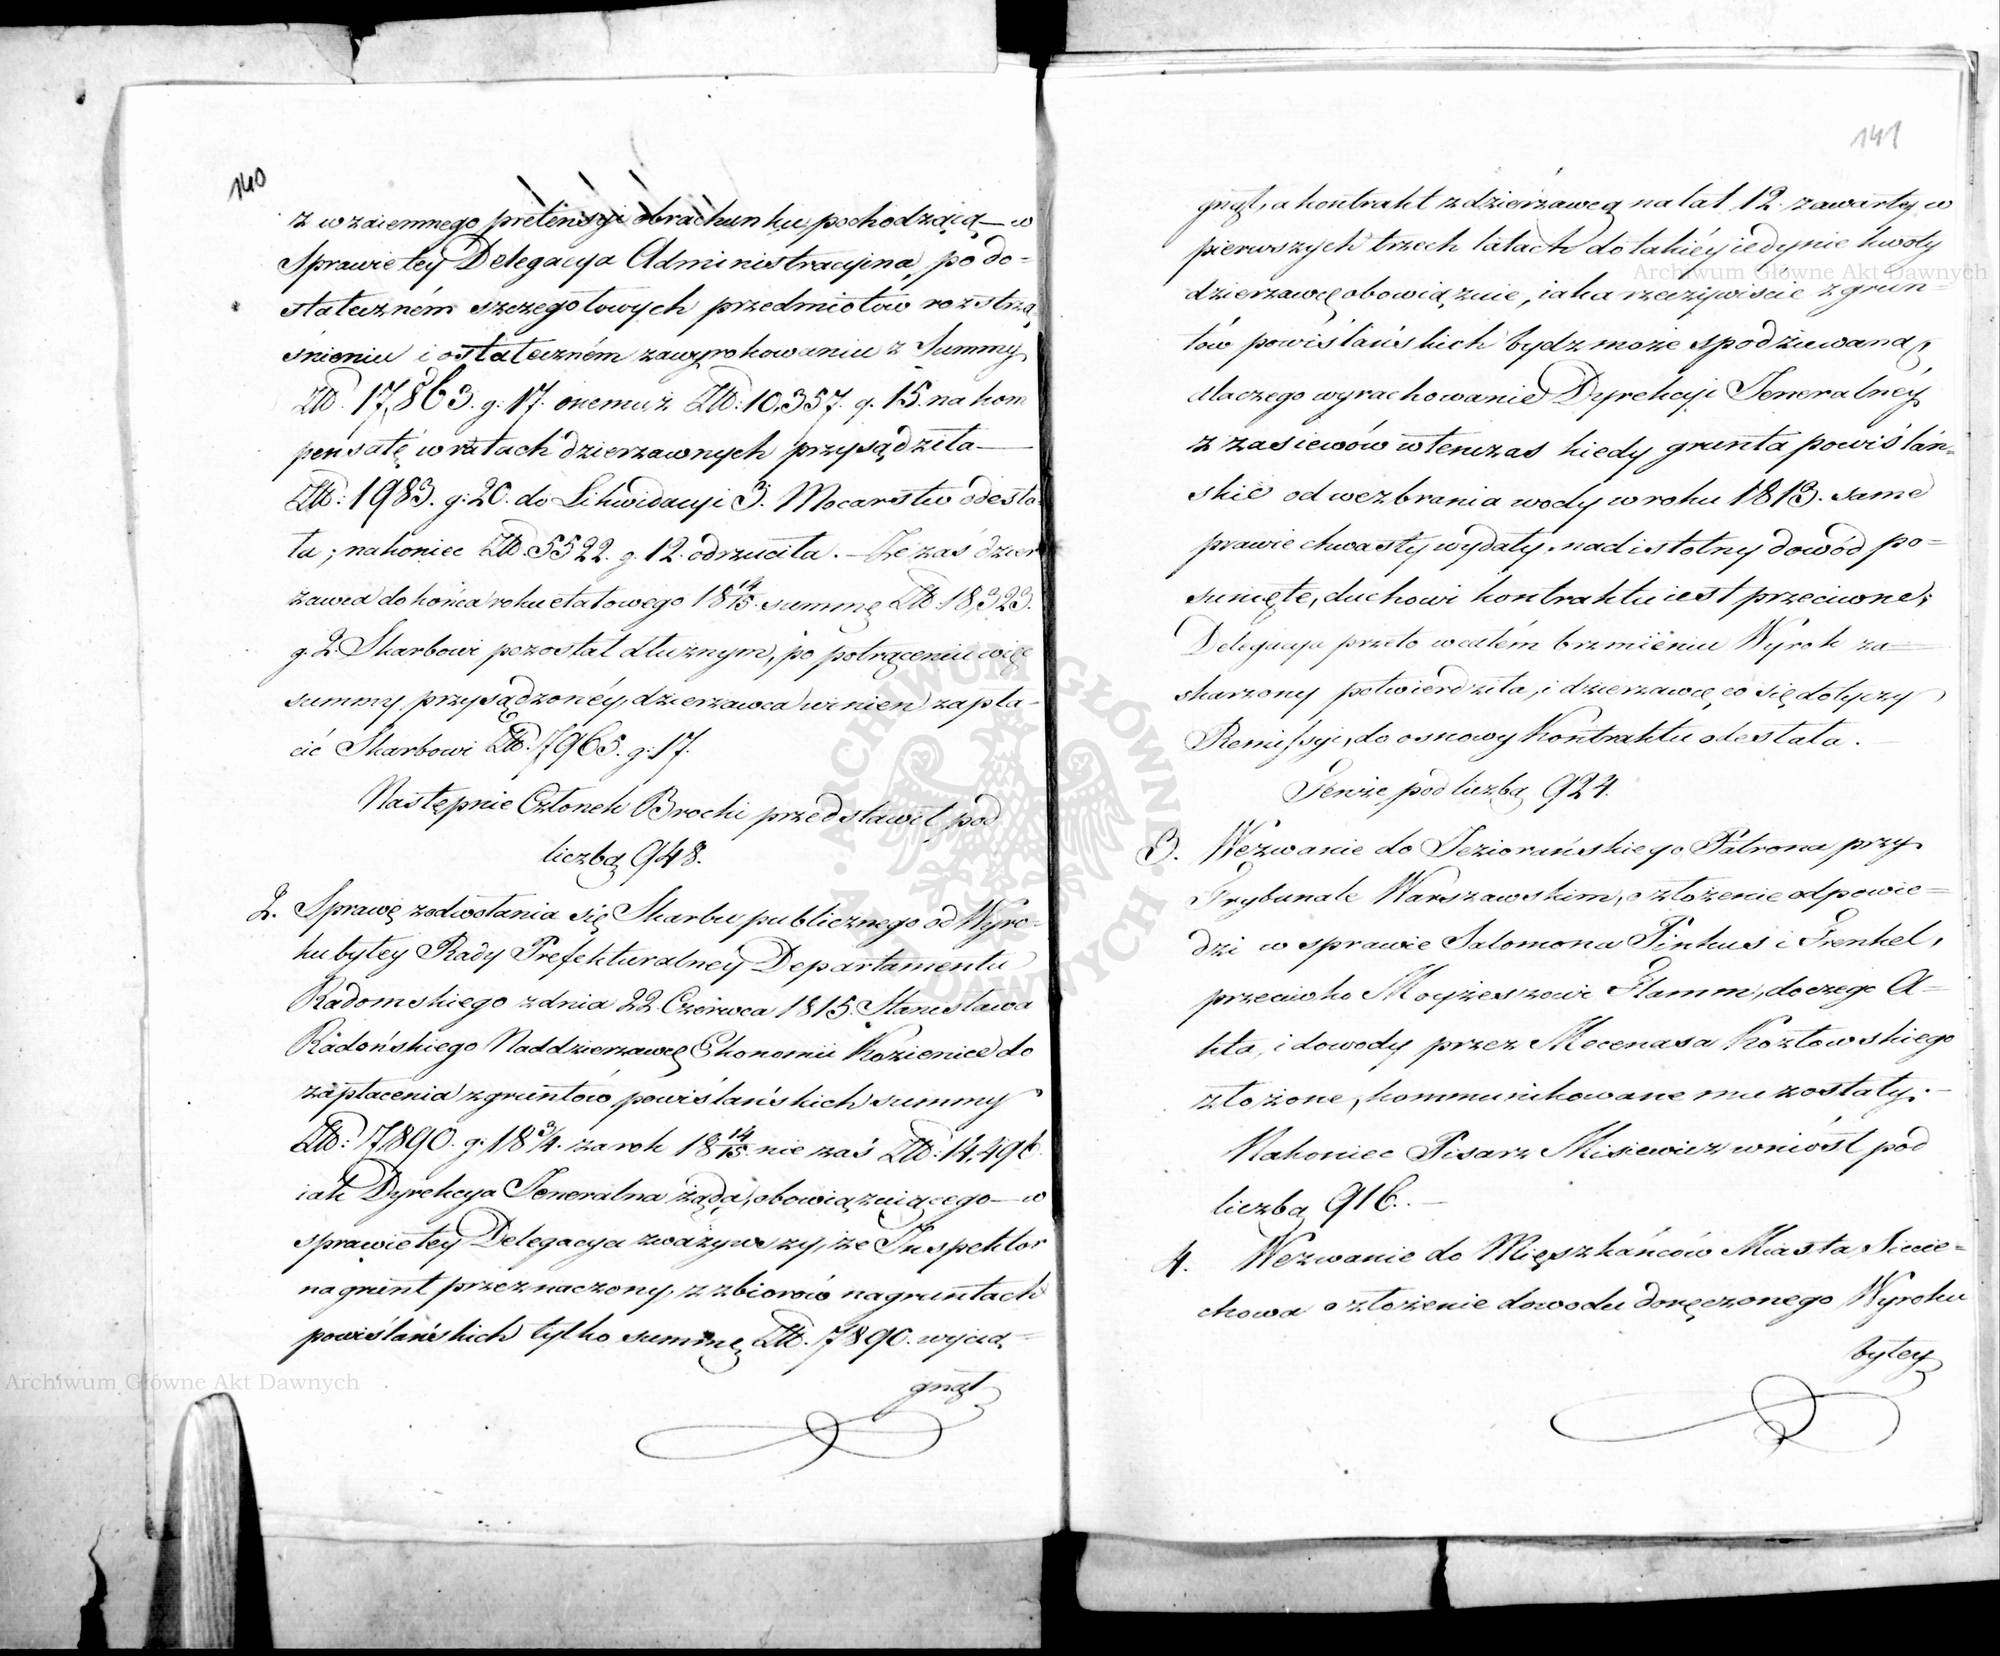 140
z wzaiemnego pretensyi obrachunku pochodzącą — w
Sprawie tey Delegacya Administracyina, po do=
stateczném szczegółowych przedmiotów roztrzą
śnieniu i ostateczném zawyrokowaniu z Summy
Złł. 17,863. g: 17. onemuż Złł: 10,357. g. 15. na kom
pensatę w ratach dzierzawnych przysądziła —
Złł: 1983. g: 20. do Likwidacyi 3. Mocarstw odesła
ła; nakoniec Złł. 5522. g. 12. odrzuciła. — Że zaś dzier
żawca do końca roku etatowego 18 14/15. summę Złł. 18,323.
g. 2. Skarbowi pozostał dłużnym, po potrąceniu więc
summy przysądzonéy, dzierzawca winien zapła-
cić Skarbowi Złł. 7965. g: 17.
Następnie Członek Brocki przedstawił pod
liczbą 948.
2. Sprawę z odwołania się Skarbu publicznego od Wyro-
ku byłey Rady Prefekturalnéy Departamentu
Radomskiego z dnia 22. Czerwca 1815. Stanisława
Radońskiego Naddzierzawcę Ekonomii Kozienice do
zapłacenia z gruntów powiślańskich summy
Złł: 7890. g: 18 3/4. za rok 18 14/15 nie zaś Złł: 14,496.
iak Dyrekcya Jeneralna żąda, obowiązuiącego — w
sprawie tey Delegacya zważywszy, że Inspektor
na grunt przeznaczony, z zbiorów na gruntach
powiślańskich tylko summę Złł. 7890. wycią=
gnął
141
gnął, a kontrakt z dzierżawcą na lat 12. zawarty, w
pierwszych trzech latach do takiéy iedynie kwoty
dzierzawcę obowiązuie, iaka rzeczywiście z grun=
tów powiślańskich bydź może spodziewaną;
dlaczego wyrachowanie Dyrekcyi Jeneralnéy
z zasiewów wtenczas kiedy grunta powiślań=
skie od wezbrania wody w roku 1813. same
prawie chwasty wydały, nad istotny dowód po=
sunięte, duchowi kontraktu iest przeciwne;
Delegacya przeto w całém brzmieniu Wyrok za=
skarzony potwierdziła, i dzierzawcę, co się dotyczy
Remissyi, do osnowy Kontraktu odesłała. —
Tenże pod liczbą 924.
3. Wezwanie do Jeziorańskiego Patrona przy
Trybunale Warszawskim, o złożenie odpowie=
dzi w sprawie Salomona Pinkus i Frenkel,
przeciwko Moyżeszowi Flamm, do czego A=
kta, i dowody przez Mecenasa Kozłowskiego
złożone, kommunikowane mu zostały. —
Nakoniec Pisarz Misiewicz wniósł pod
liczbą 916. —
4. Wezwanie do Mięszkańców Miasta Siecie=
chowa o złożenie dowodu doręczonego Wyroku
byłey
Archiwum Główne Akt Dawnych
Archiwum Główne Akt Dawnych
ARCHIWUM GŁÓWNE AKT DAWNYCH